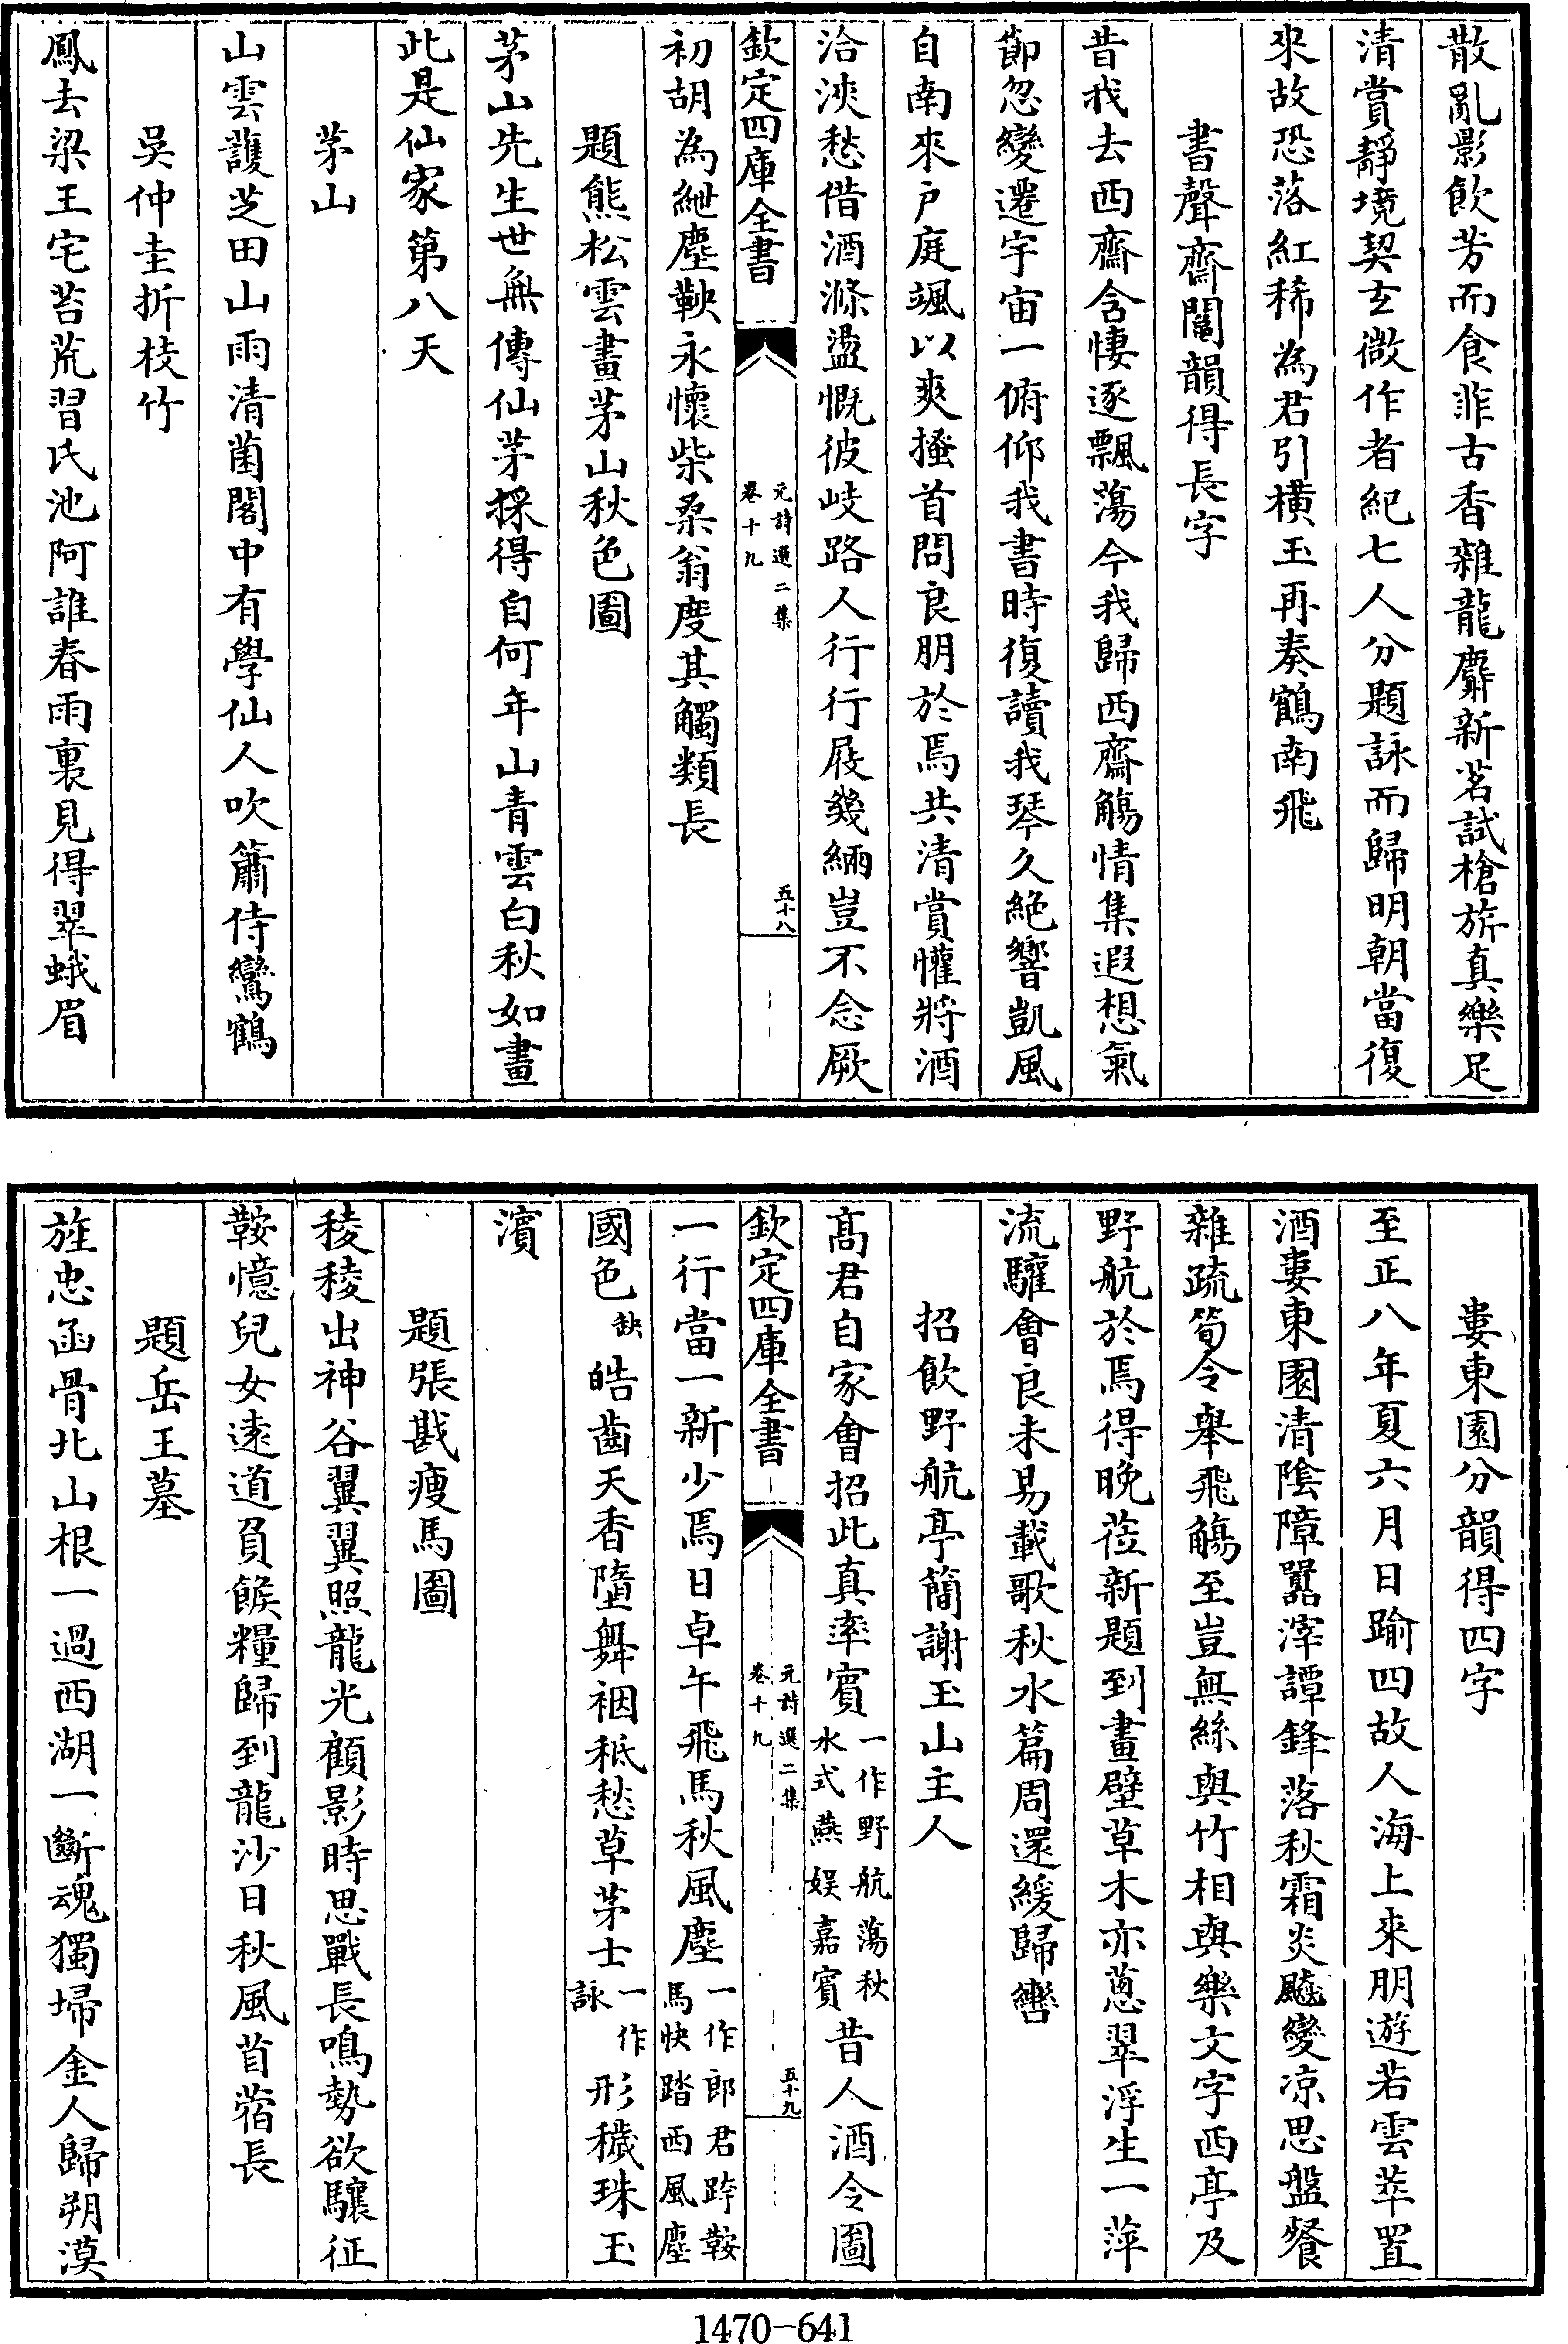 散亂影飲芳而食菲古香雜龍麝新茗試槍旂真樂足
清賞靜境契玄微作者紀七人分題詠而歸明朝當復
來故恐落紅稀為君引橫玉再奏鶴南飛
書聲齋鬮韻得長字
昔我去西齋含悽逐飄蕩今我歸西齋觴情集遐想氣
節忽變遷宇宙一俯仰我書時復讀我琴久絕響凱風
自南來戶庭颯以爽搔首問良朋於焉共清賞懽將酒
洽浹愁借酒滌盪慨彼歧路人行行屐幾緉豈不念厥
欽定四庫全書
元詩選二集
卷十九
五十八
初胡為紲塵鞅永懷柴桑翁度其觸類長
題熊松雲畫茅山秋色圖
茅山先生世無傳仙茅採得自何年山青雲白秋如畫
此是仙家第八天
茅山
山雲護芝田山雨清菌閣中有學仙人吹簫侍鸞鶴
吳仲圭折枝竹
鳳去梁王宅苔荒習氏池阿誰春雨裏見得翠蛾眉
婁東園分韻得四字
至正八年夏六月日踰四故人海上來朋遊若雲萃置
酒婁東園清陰障囂滓譚鋒落秋霜炎飈變凉思盤餐
雜蔬筍令舉飛觴至豈無絲與竹相與樂文字西亭及
野航於焉得晚蒞新題到畫壁草木亦蔥翠浮生一萍
流驩會良未易載歌秋水篇周還緩歸轡
招飲野航亭簡謝玉山主人
高君自家會招此真率賓一作野航蕩秋水式燕娛嘉賓昔人酒令圖
欽定四庫全書
元詩選二集
卷十九
五十九
一行當一新少焉日卓午飛馬秋風塵一作郎君跨鞍馬快踏西風塵
國色缺皓齒天香墮舞裀秪愁草茅士一作詠形穢珠玉
濱
題張戡瘦馬圖
稜稜出神谷翼翼照龍光顧影時思戰長鳴勢欲驤征
鞍憶兒女遠道負餱糧歸到龍沙日秋風苜蓿長
題岳王墓
旌忠函骨北山根一過西湖一斷魂獨埽金人歸朔漠
1470-641